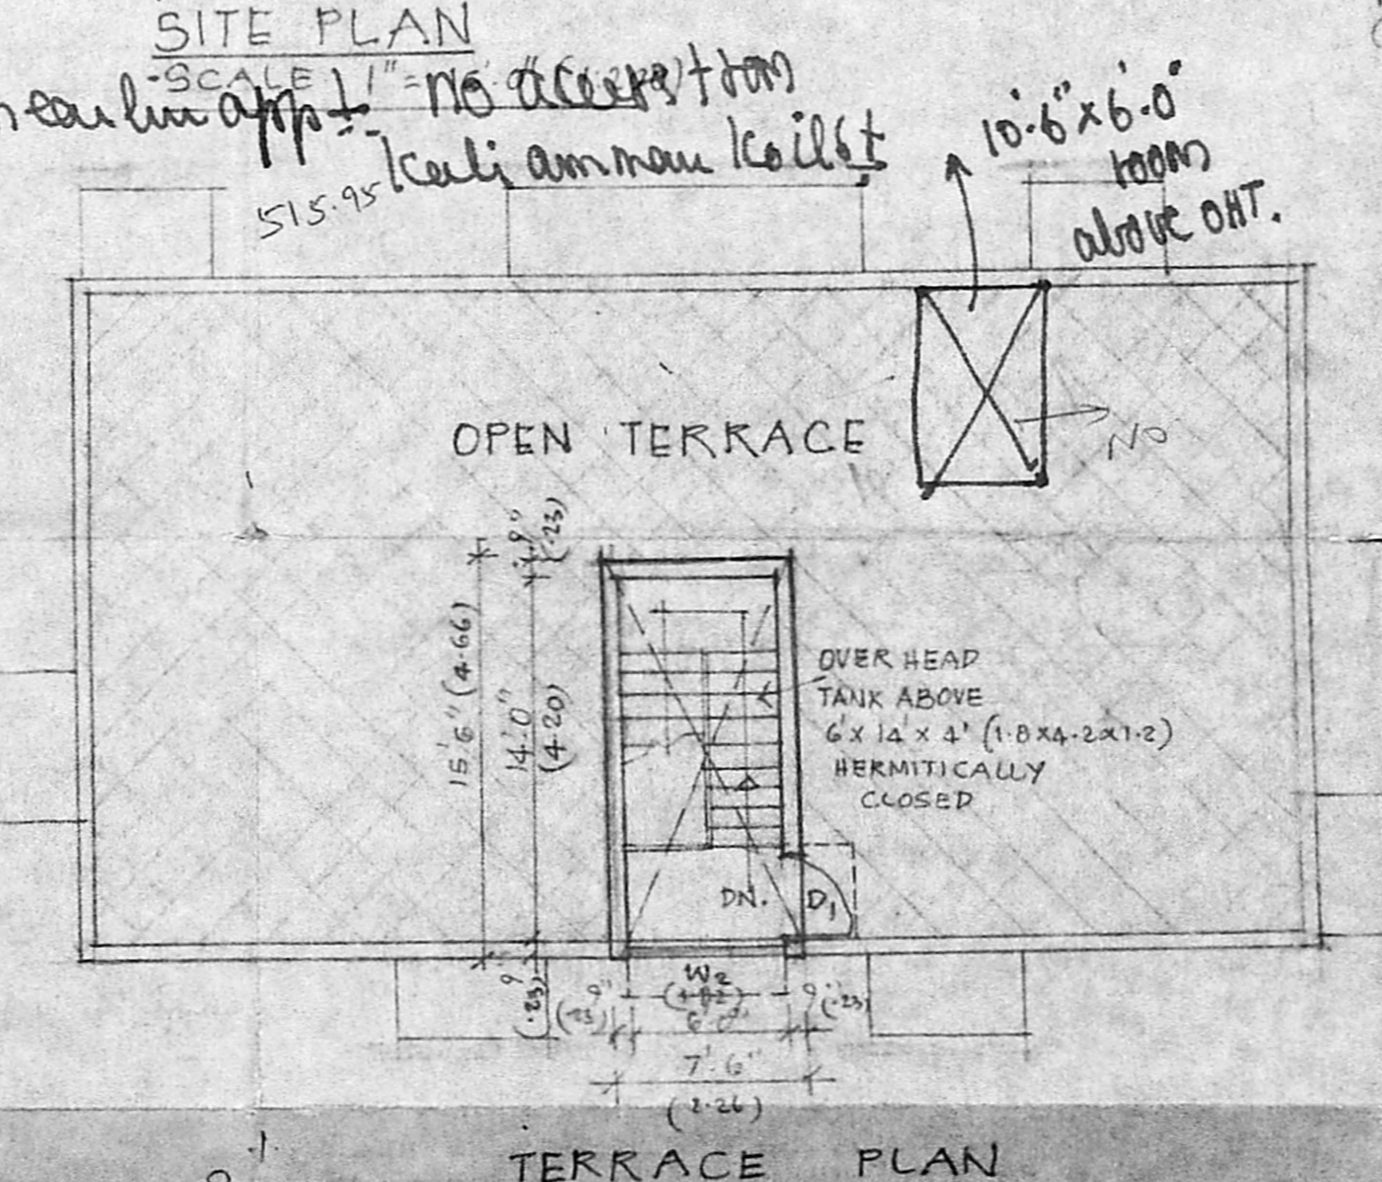 SITE PLAN
SCALE 1" =
app no access from
Kali amman Koil St
515.95
10'.6" x 6'.0"
room
above OHT.
OPEN TERRACE
NO
9"
(.23)
15'.6" (4.66)
14'.0"
(4.20)
OVER HEAD
TANK ABOVE
6' x 14' x 4' (1.8x4.2x1.2)
HERMITICALLY
CLOSED
DN. D1
9"
(.23)
9"
(.23)
W2
6'.0"
9" (.23)
7'.6"
(2.26)
TERRACE PLAN